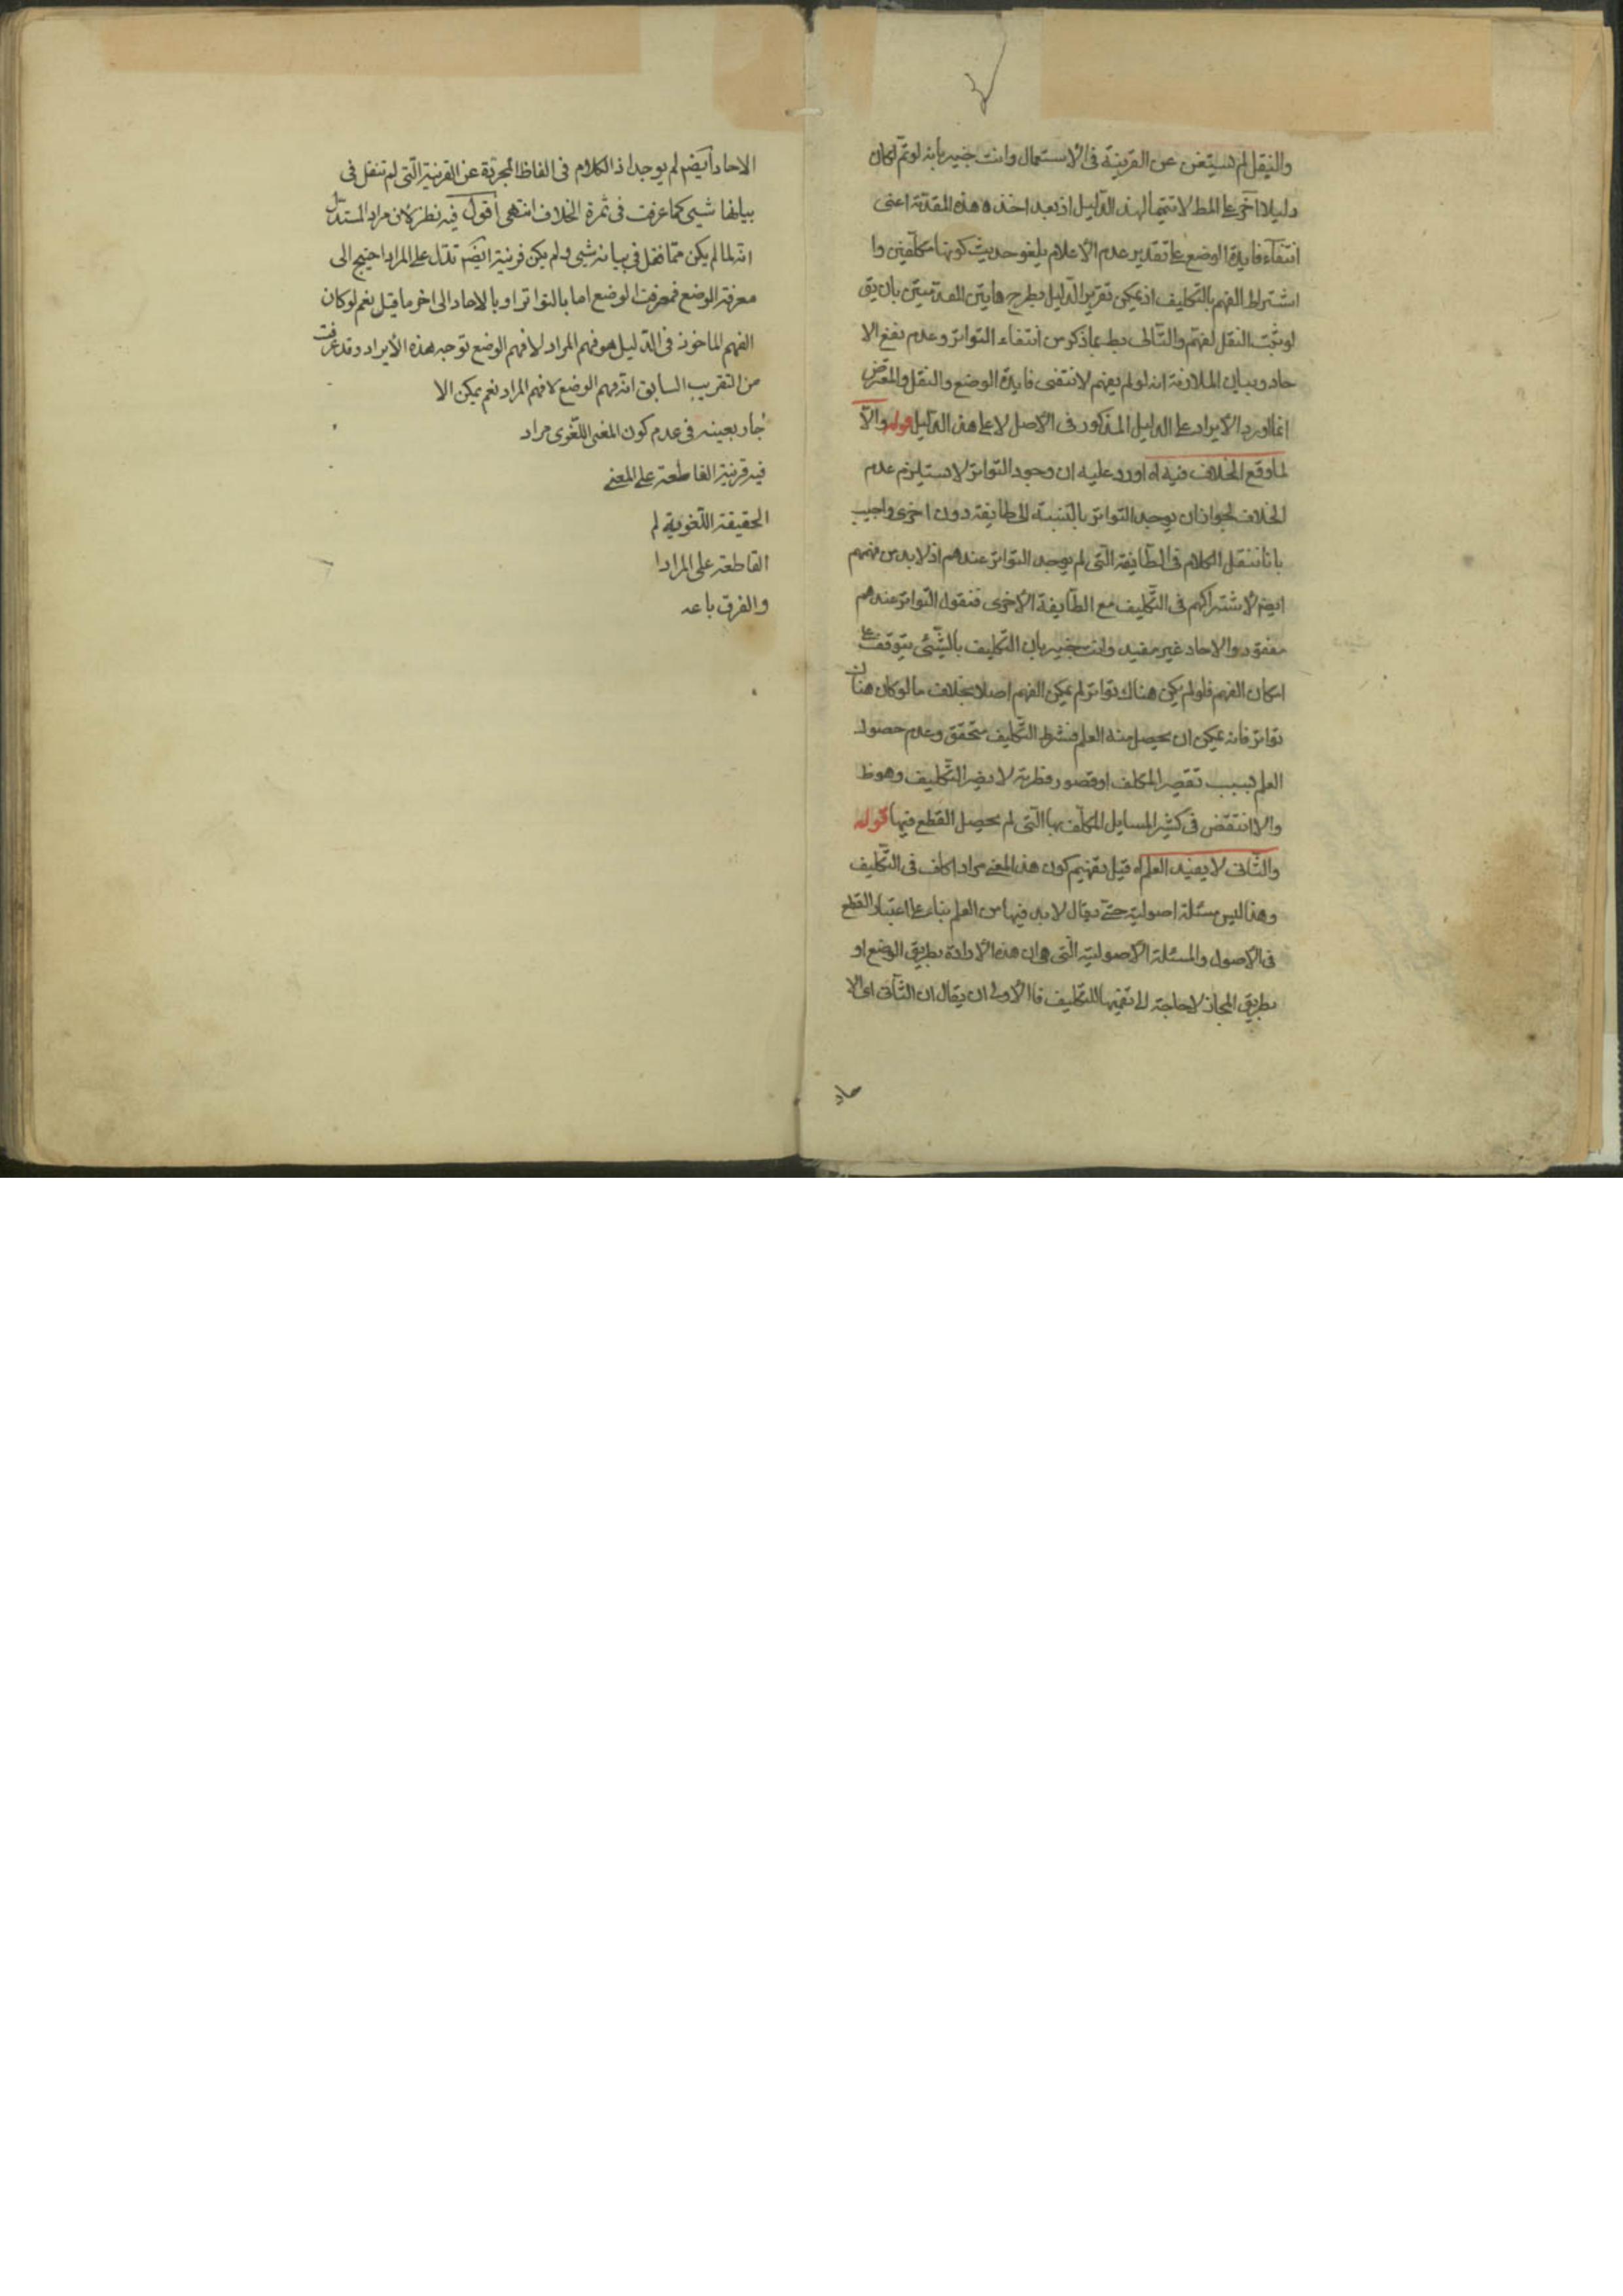 والنقل لم يستغن عن القرينة فى الاستعمال وانت خبير بانه لو تم لكان
دليلا آخر على المط لا تتميما لهذا الدليل اذ بعد اخذ هذه المقدمة اعنى
انتفاء فايدة الوضع على تقدير عدم الاعلام يلغو حديث كونها مكلفين وا
اشتراط الفهم بالتكليف اذ يمكن تقرير الدليل بطرح هاتين المقدمتين بان يق
لو ثبت النقل لفهم والتالى بط بما ذكر من انتفاء التواتر وعدم نفع الا
حاد وبيان الملازمة انه لو لم يفهم لانتفى فايدة الوضع والنقل والمعترض
انما اورد الايراد على الدليل المذكور فى الاصل لا على هذا الدليل قوله والا
لما وقع الخلاف فيه اه اورد عليه ان وجود التواتر لا يستلزم عدم
الخلاف لجواز ان يوجد التواتر بالنسبة الى طايفة دون اخرى واجيب
بانا ننقل الكلام فى الطايفة التى لم يوجد التواتر عندهم اذ لا بد من فهمهم
ايضا لاشتراكهم فى التكليف مع الطايفة الاخرى فنقول التواتر عندهم
مفقود والاحاد غير مفيد وانت خبير بان التكليف بالشئ يتوقف على
امكان الفهم فلو لم يكن هناك تواتر لم يمكن الفهم اصلا بخلاف ما لو كان هناك
تواتر فانه يمكن ان يحصل منه العلم فشرط التكليف متحقق وعدم حصول
العلم بسبب تقصير المكلف او قصور فطريته لا يضر التكليف وهو ظ
والا انتقض فى كثير المسايل المكلف بها التى لم يحصل القطع فيها قوله
والثانى لا يفيد العلم اه قيل تفهيم كون هذا المعنى مرادا كاف فى التكليف
وهذا ليس مسئلة اصولية حتى يقال لا بد فيها من العلم بناء على اعتبار القطع
فى الاصول والمسئلة الاصولية التى هى ان هذه الارادة بطريق الوضع او
بطريق المجاز لا حاجة الى تفهيمها للتكليف فالاولى ان يقال ان الثانى اى الا
حاد
الاحاد ايضم لم يوجد اذ الكلام فى الفاظ المجردة عن القرنية التى لم تنقل فى
بيانها شيى كما عرفت فى ثمرة الخلاف انتهى اقول فيه نظر لان مراد المستدل
انه لما لم يكن مما نقل فى بيانه شيى ولم يكن قرنية ايضم تدل على المراد احتيج الى
معرفة الوضع فمعرفة الوضع اما بالتواتر او بالاحاد الى اخر ما قيل نعم لو كان
الفهم الماخوذ فى الدليل هو فهم المراد لا فهم الوضع توجه هذه الايراد وقد عرفت
من التقريب السابق انه فهم الوضع لا فهم المراد نعم يمكن الا
جار بعينه فى عدم كون المعنى اللغوى مراد
فيه قرنية القاطعة على المعنى
الحقيقة اللغوية لم
القاطعة على المرادا
والفرق باعد